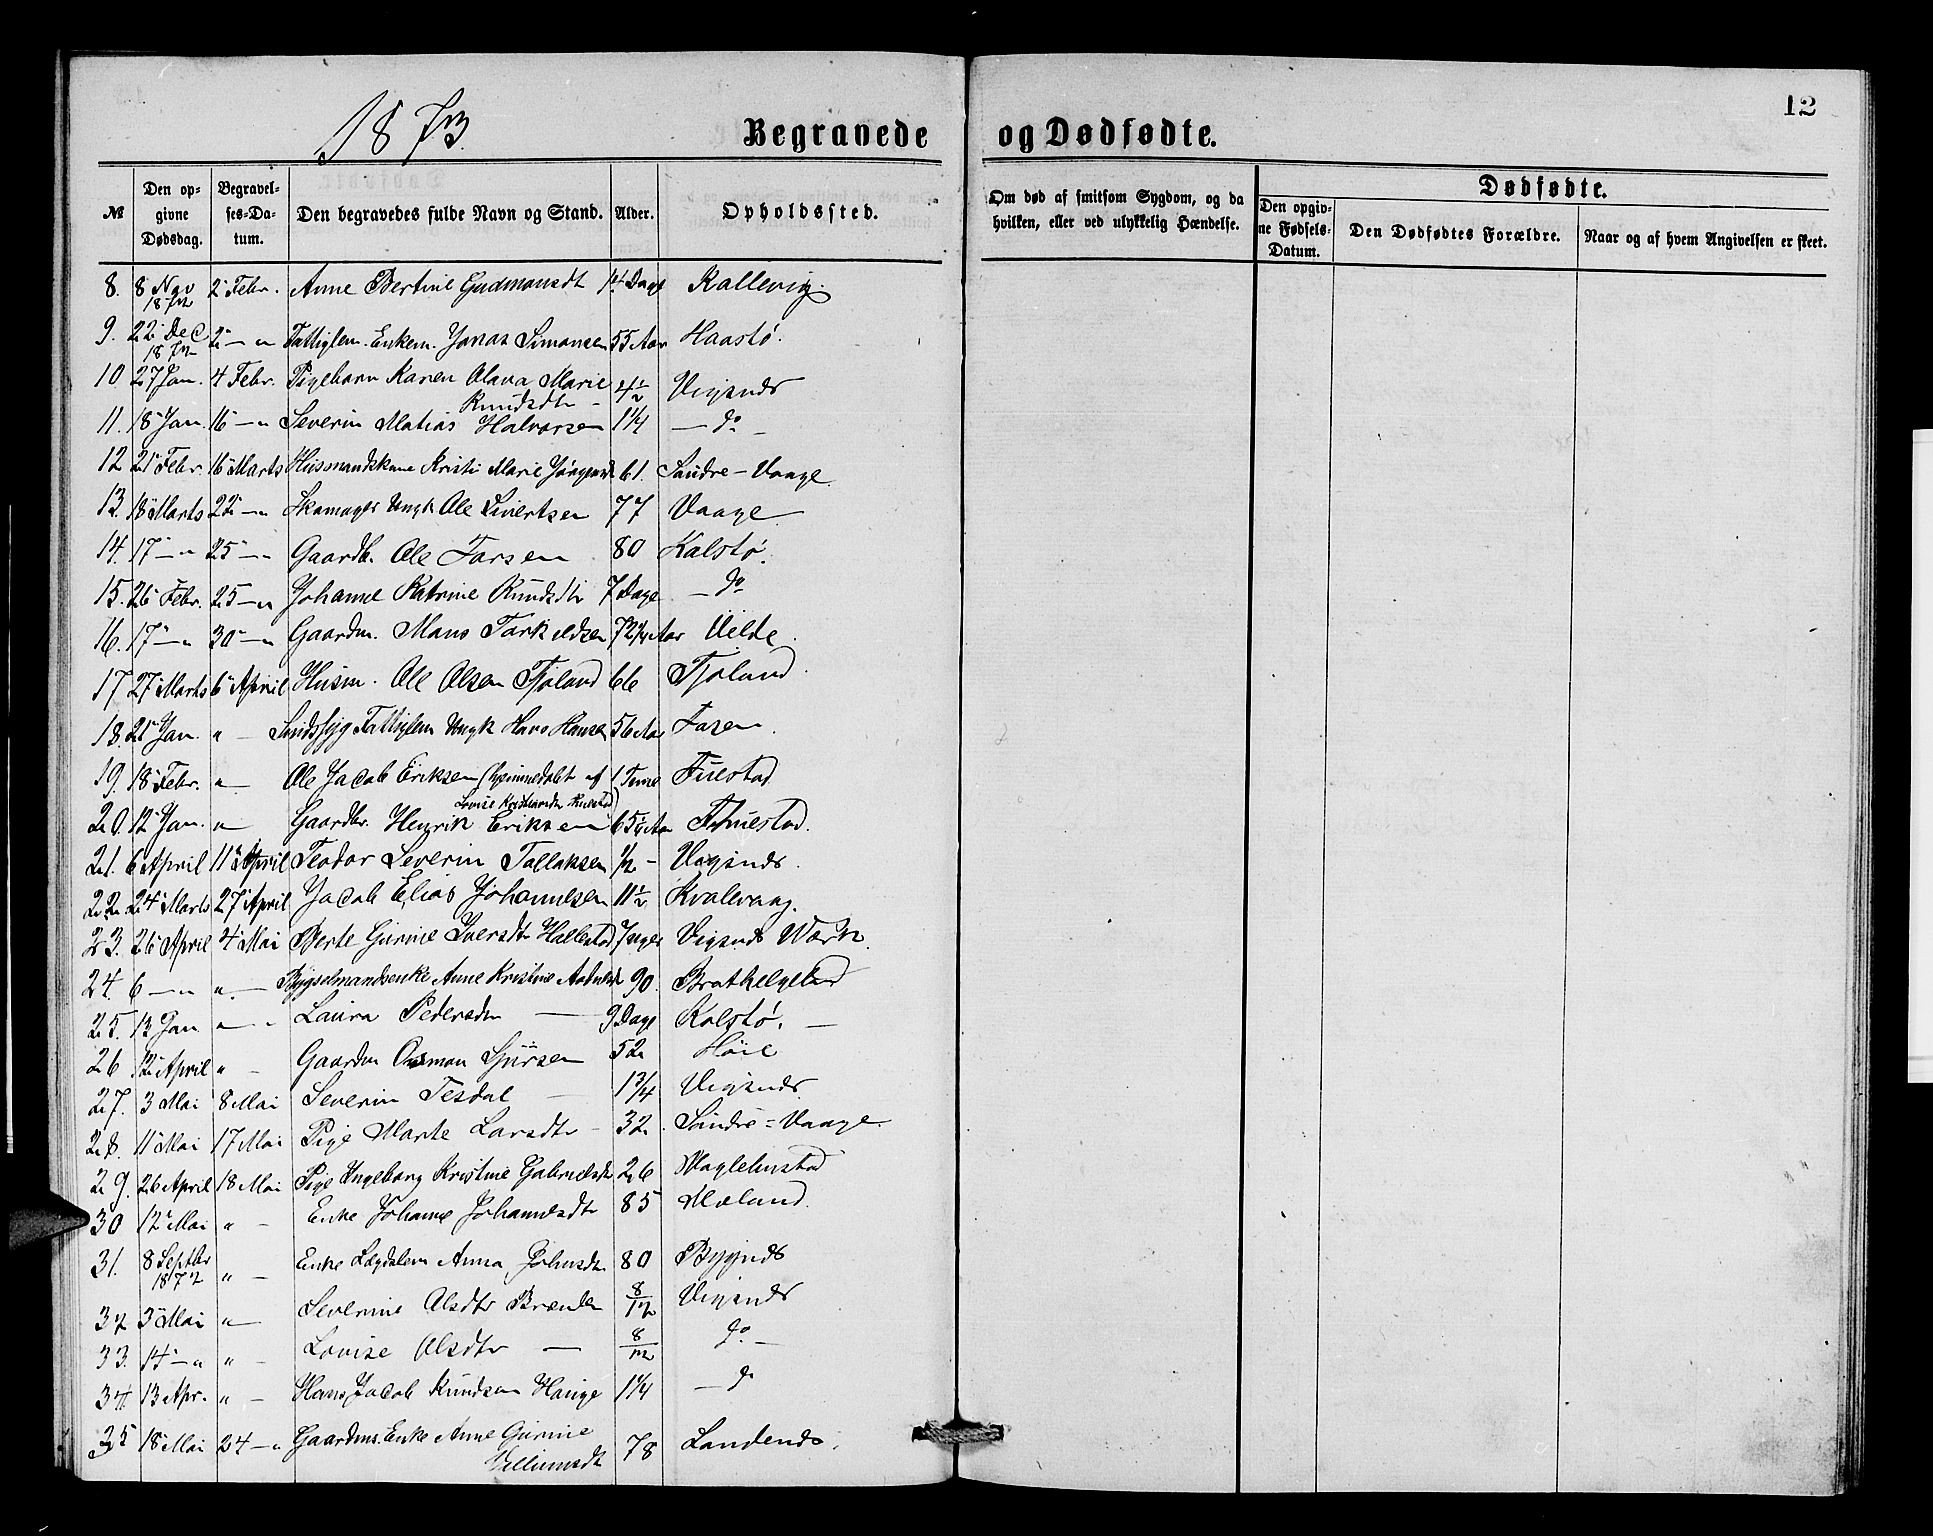 12
1873.
Begravede og Dødfødte.
№ Den opgivne Dødsdag. Begravelses-Datum. Den begravedes fulde Navn og Stand. Alder. Opholdssted. Om død af smitsom Sygdom, og da hvilken, eller ved ulykkelig Hændelse. Dødfødte. Den opgivne Fødsels-Datum. Den Dødfødtes Forældre. Naar og af hvem Angivelsen er skeet.
8. 8 Nov 1872 2 Febr. Anne Bertine Gudmansdt 14 Dage Kallevig.
9. 22 Dec 1872 2 — " Fattiglem. Enkem. Jonas Simonsen 55 Aar Haastø.
10 27 Jan. 4 Febr. Pigebarn Karen Olava Marie Knudsdtr 4½ Vigsnæs
11. 18 Jan. 16 — " Severin Matias Halvorsen 1¼ — do —
12 21 Febr. 16 Marts Husmandskone Kristi Marie 61. Søndre-Vaage
13. 18 Marts 22 — " Ungk Ole Sivertsen 77 Vaage
14. 17 — " 25 — " Gaardb. Ole Larsen 80 Kalstø.
15. 26 Febr. 25 — " Johanne Katrine Knudsdtr 7 Dage — do
16. 17 — " 30 — " Gaardm. Mans Torkildsen 72¼ Aar Velde.
17 27 Marts 6 April Husm. Ole Olsen Tjøland 66 Tjøland
18. 21 Jan. " — Sindssyg Fattiglem Ungk Hans Hansen 56 Aar
19. 18 Febr. " — Ole Jacob Eriksen (hjemmedøbt af 1 Time
20. 12 Jan. " — Gaardbr. Henrik Eriksen
21. 6 April 11 April Teodor Severin Tollaksen ½ — Vigsnæs.
22. 24 Marts 27 April Jacob Elias Johannesen 11½ Kvalevaag.
23. 26 April 4 Mai Berte Gurine Iversdtr Hallestad Vigsnæs Værk.
24. 6 — " " — Bygselmandsenke Anne Kristine 90. Brathelgeland
25. 13 Jan " — " Laura Pedersdtr — 9 Dage Kalstø. —
26 12 April " — Gaardm Osmon 52 Høie
27. 3 Mai 8 Mai Severin Tesdal — 1¾ Vigsnæs.
28. 11 Mai 17 Mai Pige Marte Larsdtr — 32. Søndre=Vaage.
29. 26 April 18 Mai Pige Ingeborg Kristine Gabrielsdtr 26
30 12 Mai " — Enke Johanne Johannesdtr 85 Mæland.
31. 8 Septbr 1872 " — Enke Lægdslem Anna Johnsdtr 80 Bygnæs
32 3 Mai " — Severine Olsdtr 8/12 Vigsnæs
33. 14 — " " — Lovise Olsdtr — 8/12 do —
34. 13 Apr. " — Hans Jacob Knudsen Hauge 1¼ — do
35 18 Mai 24 — " Gaardms. Enke Anne Gurine Villumsdt 78 Landenæs.